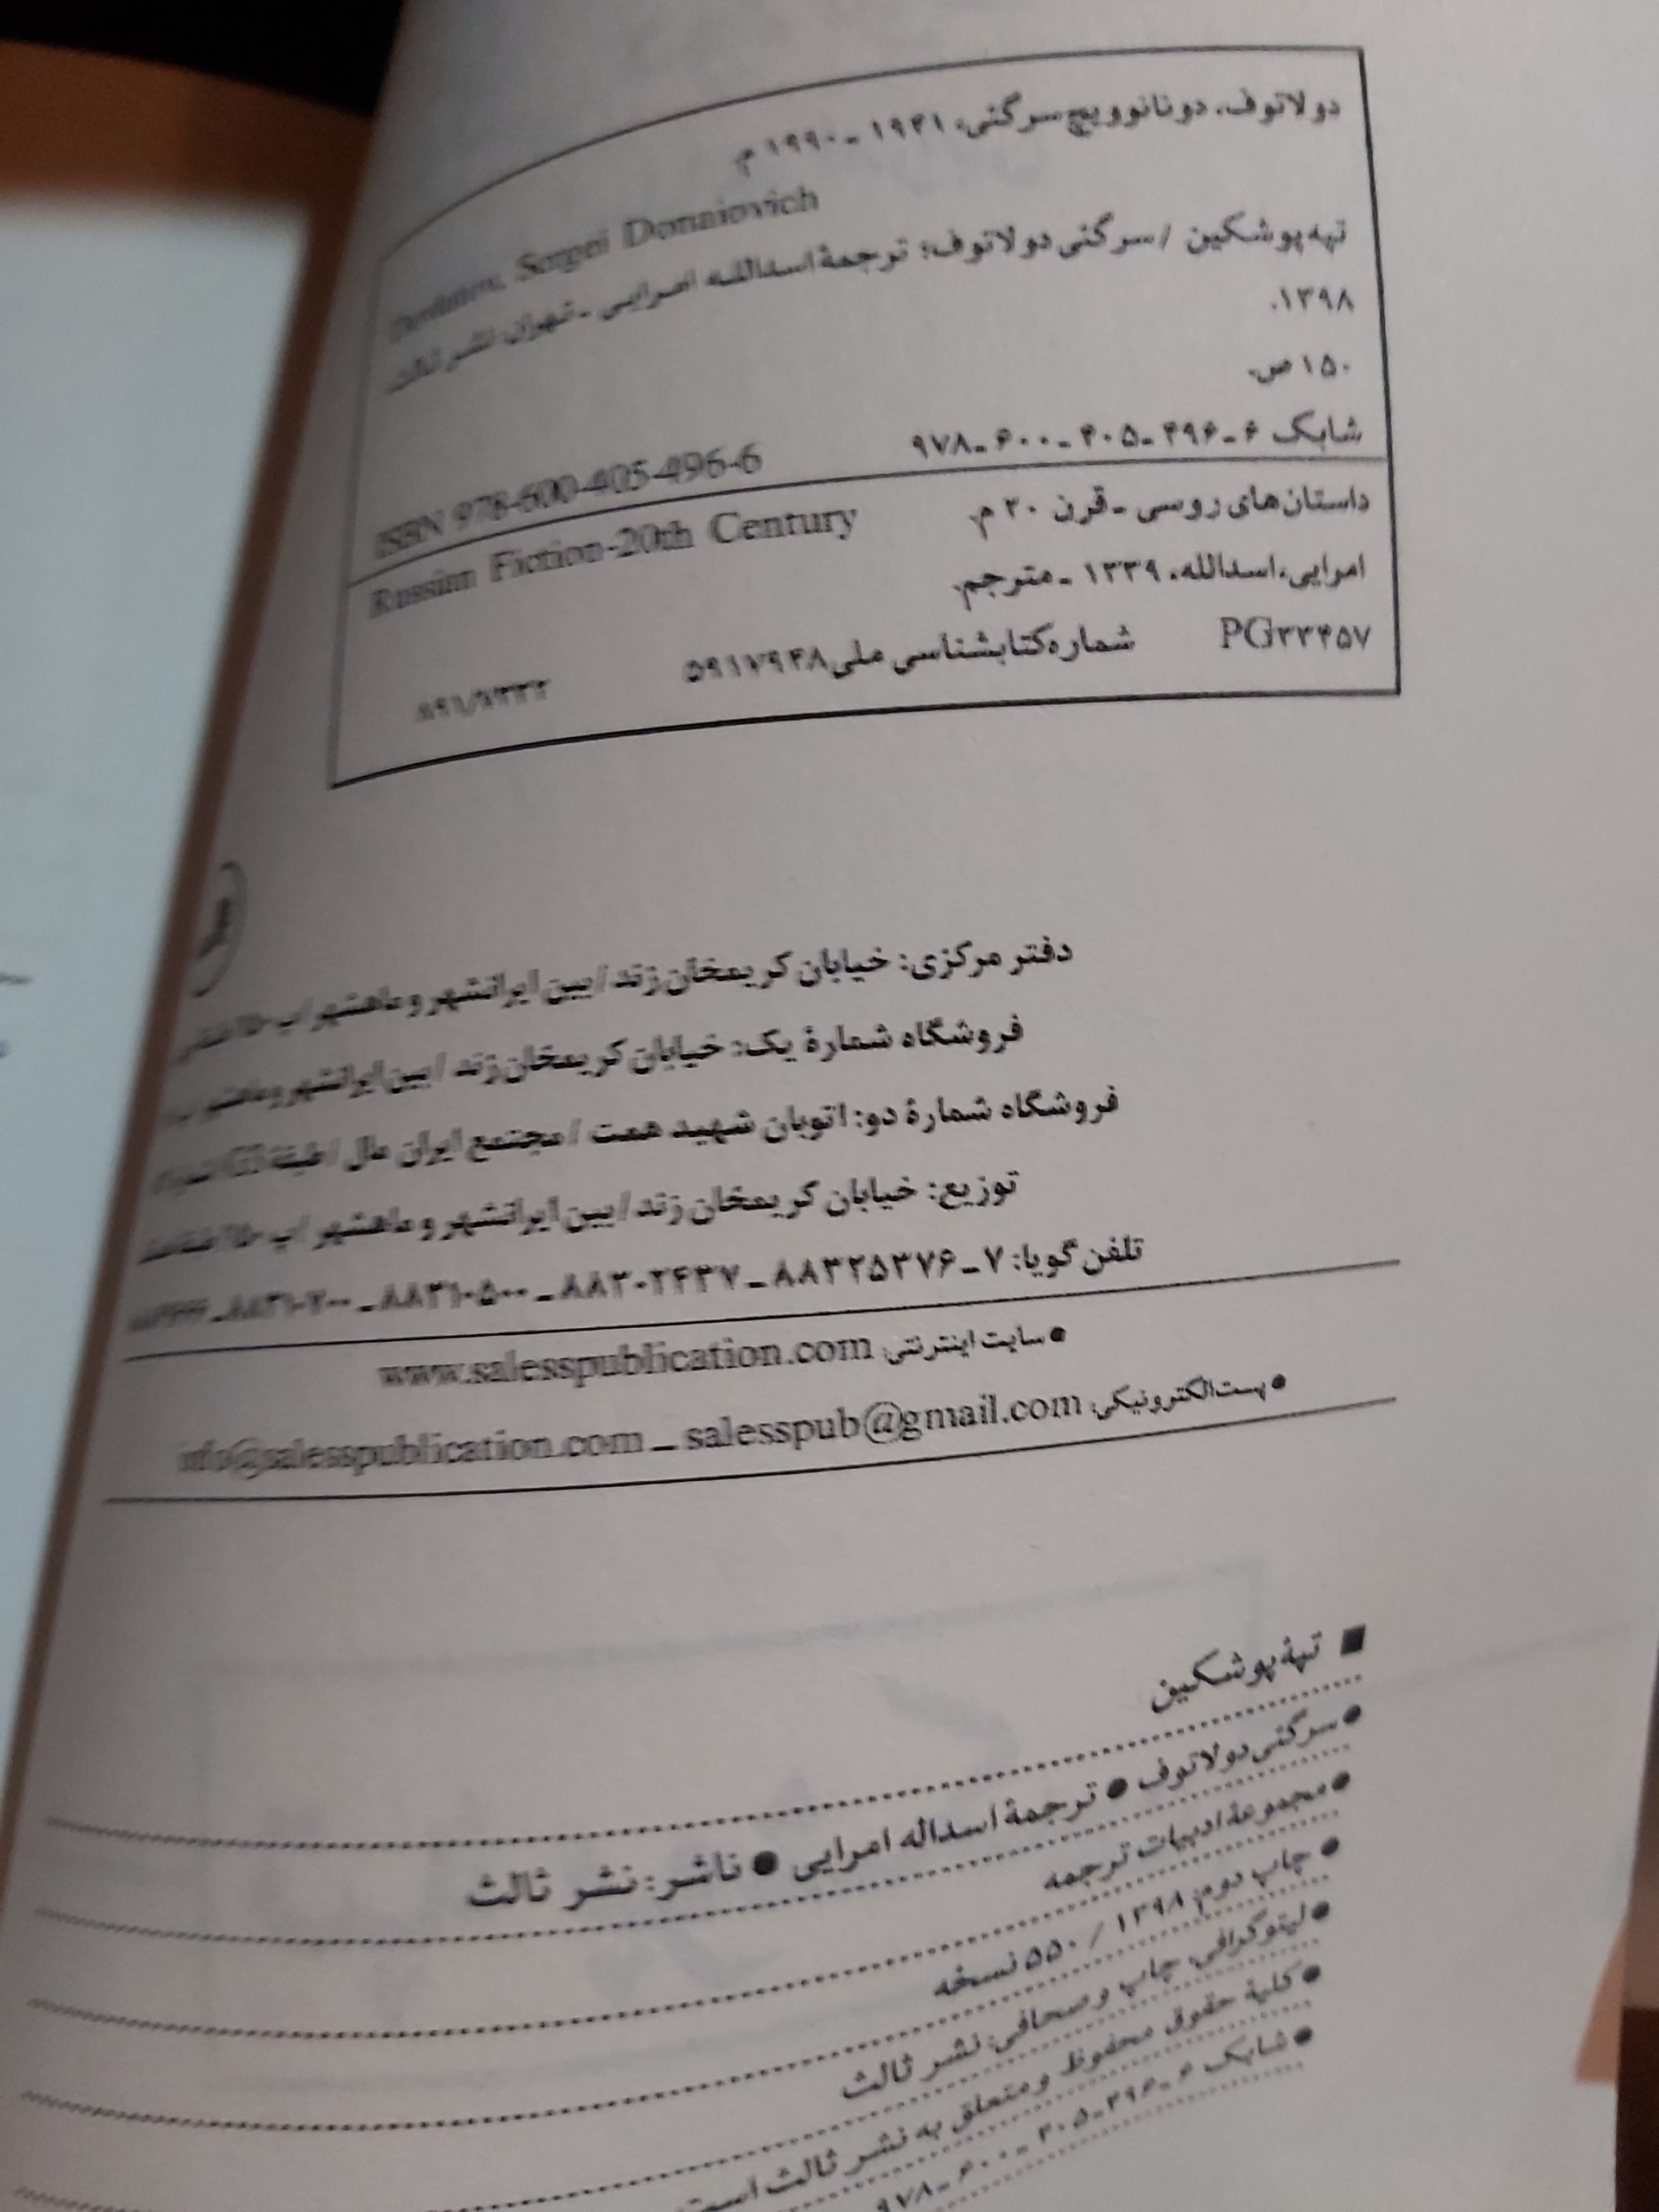 دولاتوف، دوناتوویچ سرگئی، ۱۹۴۱ ـ ۱۹۹۰ م.
Sergei Donaiovich
تپه پوشکین / سرگئی دولاتوف؛ ترجمهٔ اسدالله امرایی ـ تهران: نشر ثالث،
۱۳۹۸.
۱۵۰ ص.
شابک ۶ـ۴۹۶ـ۴۰۵ـ۶۰۰ـ۹۷۸ ISBN 978-600-405-496-6
داستان‌های روسی ـ قرن ۲۰ م. Russian Fiction-20th Century
امرایی، اسدالله، ۱۳۳۹ ـ مترجم.
PG۳۳۴۵۷ شماره کتابشناسی ملی ۵۹۱۷۹۴۸
دفتر مرکزی: خیابان کریمخان زند / بین ایرانشهر و ماهشهر / پ ۱۵۰ /
فروشگاه شمارهٔ یک: خیابان کریمخان زند / بین ایرانشهر و ماهشهر
فروشگاه شمارهٔ دو: اتوبان شهید همت / مجتمع ایران مال / طبقهٔ
توزیع: خیابان کریمخان زند / بین ایرانشهر و ماهشهر / پ ۱۵۰ /
تلفن گویا: ۷ ـ ۸۸۳۲۵۳۷۶ ـ ۸۸۳۰۲۴۳۷ ـ ۸۸۳۱۰۵۰۰ ـ ۸۸۳۱۰۷۰۰ ـ
● سایت اینترنتی: www.salesspublication.com
● پست الکترونیکی: salesspub@gmail.com ـ info@salesspublication.com
■ تپهٔ پوشکین
● سرگئی دولاتوف ● ترجمهٔ اسداله امرایی ● ناشر: نشر ثالث
● مجموعهٔ ادبیات ترجمه
● چاپ دوم: ۱۳۹۸ / ۵۵۰ نسخه
● لیتوگرافی، چاپ و صحافی: نشر ثالث
● کلیهٔ حقوق محفوظ و متعلق به نشر ثالث است.
● شابک ۶ـ۴۹۶ـ۴۰۵ـ۶۰۰ـ۹۷۸